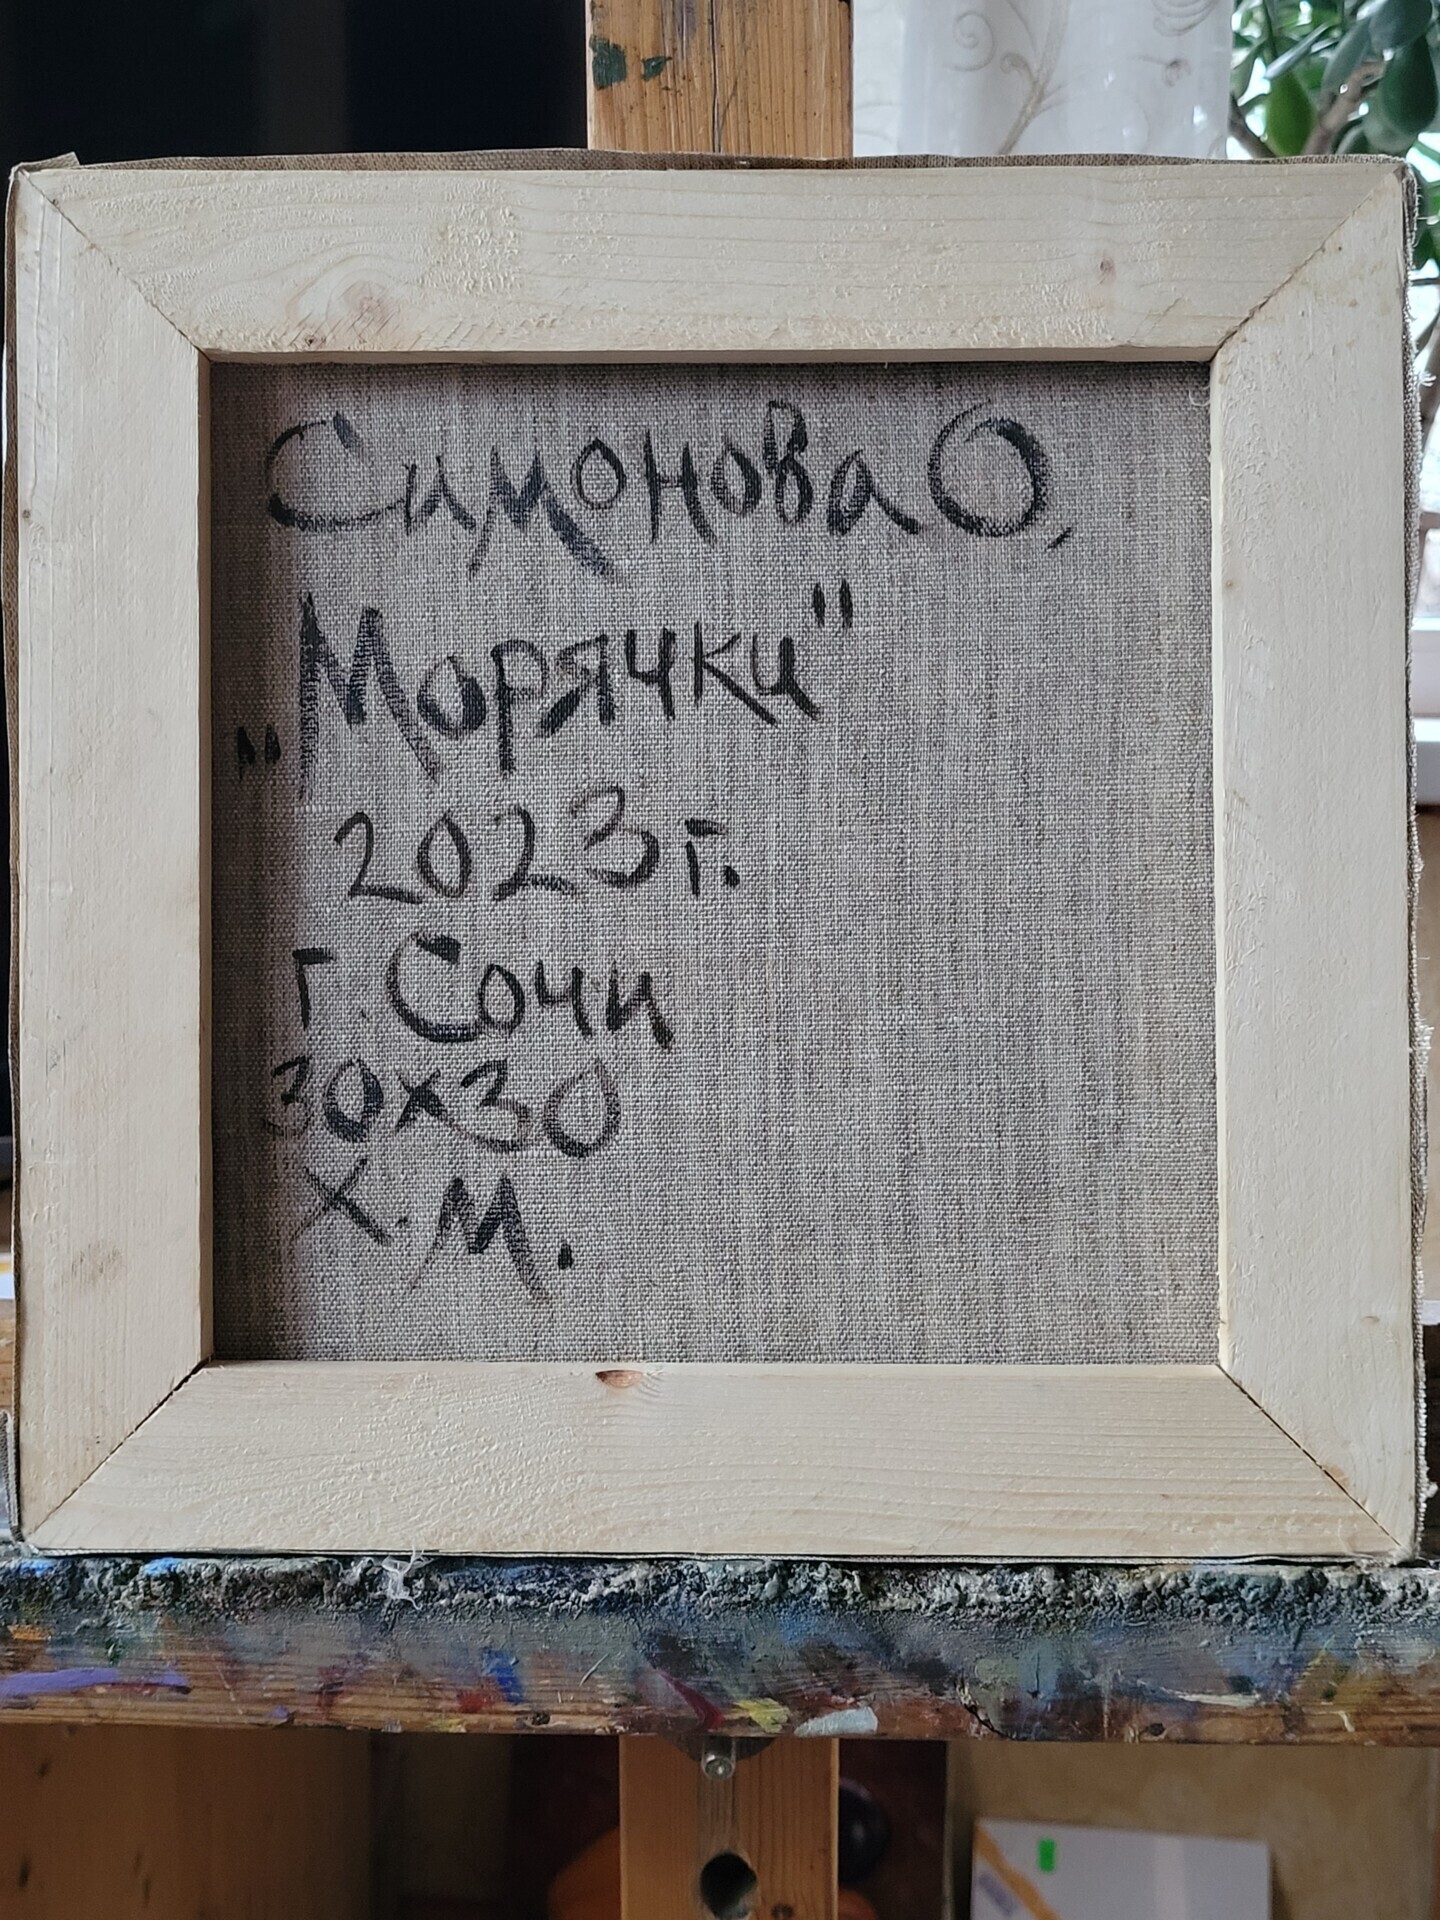 Симонова О.
„Морячки"
2023 г.
г. Сочи
30х30
х.м.